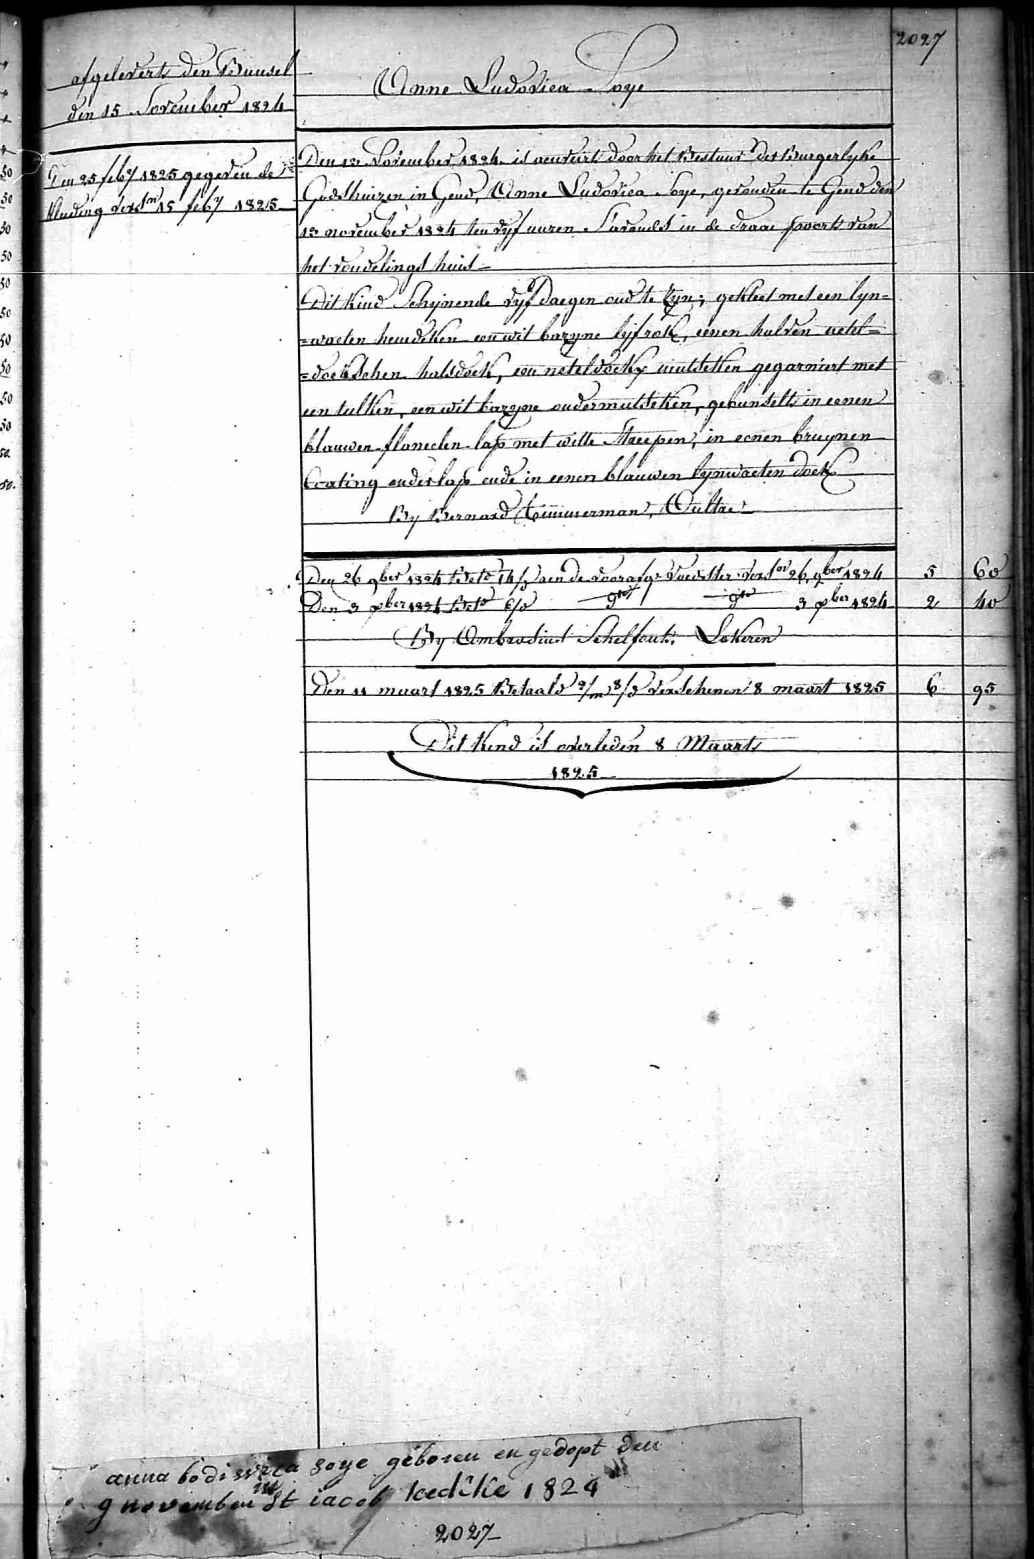 2027
afgelevert den Bunsel
den 15 November 1824
Den 25 feby 1825 gegeven de
kleeding vers.en 15 feby 1825
Anne Ludovica Soye
Den 12 November 1824 is aenveirt door het Bestuur der Burgerlyke
Godshuizen in Gend, Anne Ludovica Soye, gevonden te Gend den
12 november 1824 ten vyf uuren S'avonds in de draai poorte van
het vondelings huis
Dit Kind Schynende vyf daegen oud te Zyn; gekleet met een lyn=
=waeten hemdeken een wit bazyne lyfrok, eenen halven netel=
=doekschen halsdoek, een neteldoekx mutseken gegarniert met
een tulken, een wit bazyne ondermutseken, gebunselt in eenen
blauwen flanelen lap met witte streepen, in eenen bruynen
Coating onderlap ende in eenen blauwen lynwaeten doek
By Bernard Temmerman, Oultre
Den 26 9ber 1824 Bete 14/d aen de voorafge voedster vers.en 26 9ber 1824 5 60
Den 3 xber 1824 Bete 6/d 3 xber 1824 2 40
By Ambrosius Schelfout, Lokeren
Den 11 maart 1825 Betaald 2/m 8/d verschenen 8 maart 1825 6 95
Dit Kind is overleden 8 Maarts
1825
anna lodiwica soye geboren en gedopt den
9 november in St iacob kedike 1824
2027